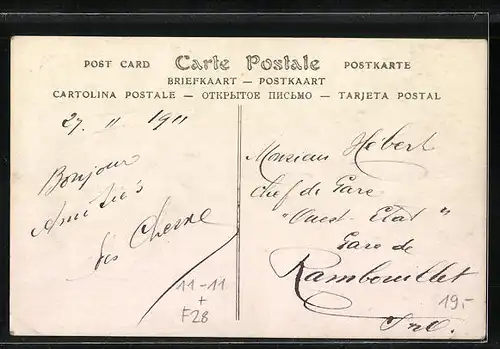 POST CARD Carte Postale POSTKARTE
BRIEFKAART — POSTKAART
CARTOLINA POSTALE — ОТКРЫТОЕ ПИСЬМО — TARJETA POSTAL
27. 11 1911
Bonjour
Amitiés
11-11
+
F28
Monsieur Hébert
Chef de Gare
"Ouest-Etat"
Gare de
Rambouillet
19.-